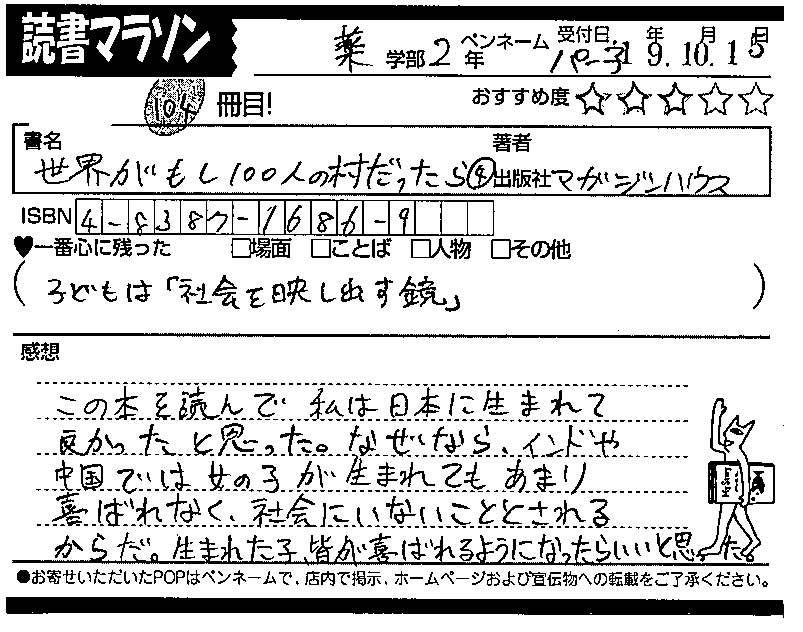 読書マラソン
薬 学部 2 年 ペンネーム パー子 受付日 19年.10月.15日
104 冊目!
おすすめ度 ☆☆☆☆☆
書名 著者
世界がもし100人の村だったら④ 出版社 マガジンハウス
ISBN 4-8387-1686-9
♥一番心に残った □場面 □ことば □人物 □その他
(子どもは「社会を映し出す鏡」)
感想
この本を読んで 私は日本に生まれて
良かったと思った。なぜなら、インドや
中国では女の子が生まれてもあまり
喜ばれなく、社会にいないこととされる
からだ。生まれた子、皆が喜ばれるようになったらいいと思った。
●お寄せいただいたPOPはペンネームで、店内で掲示、ホームページおよび宣伝物への転載をご了承ください。